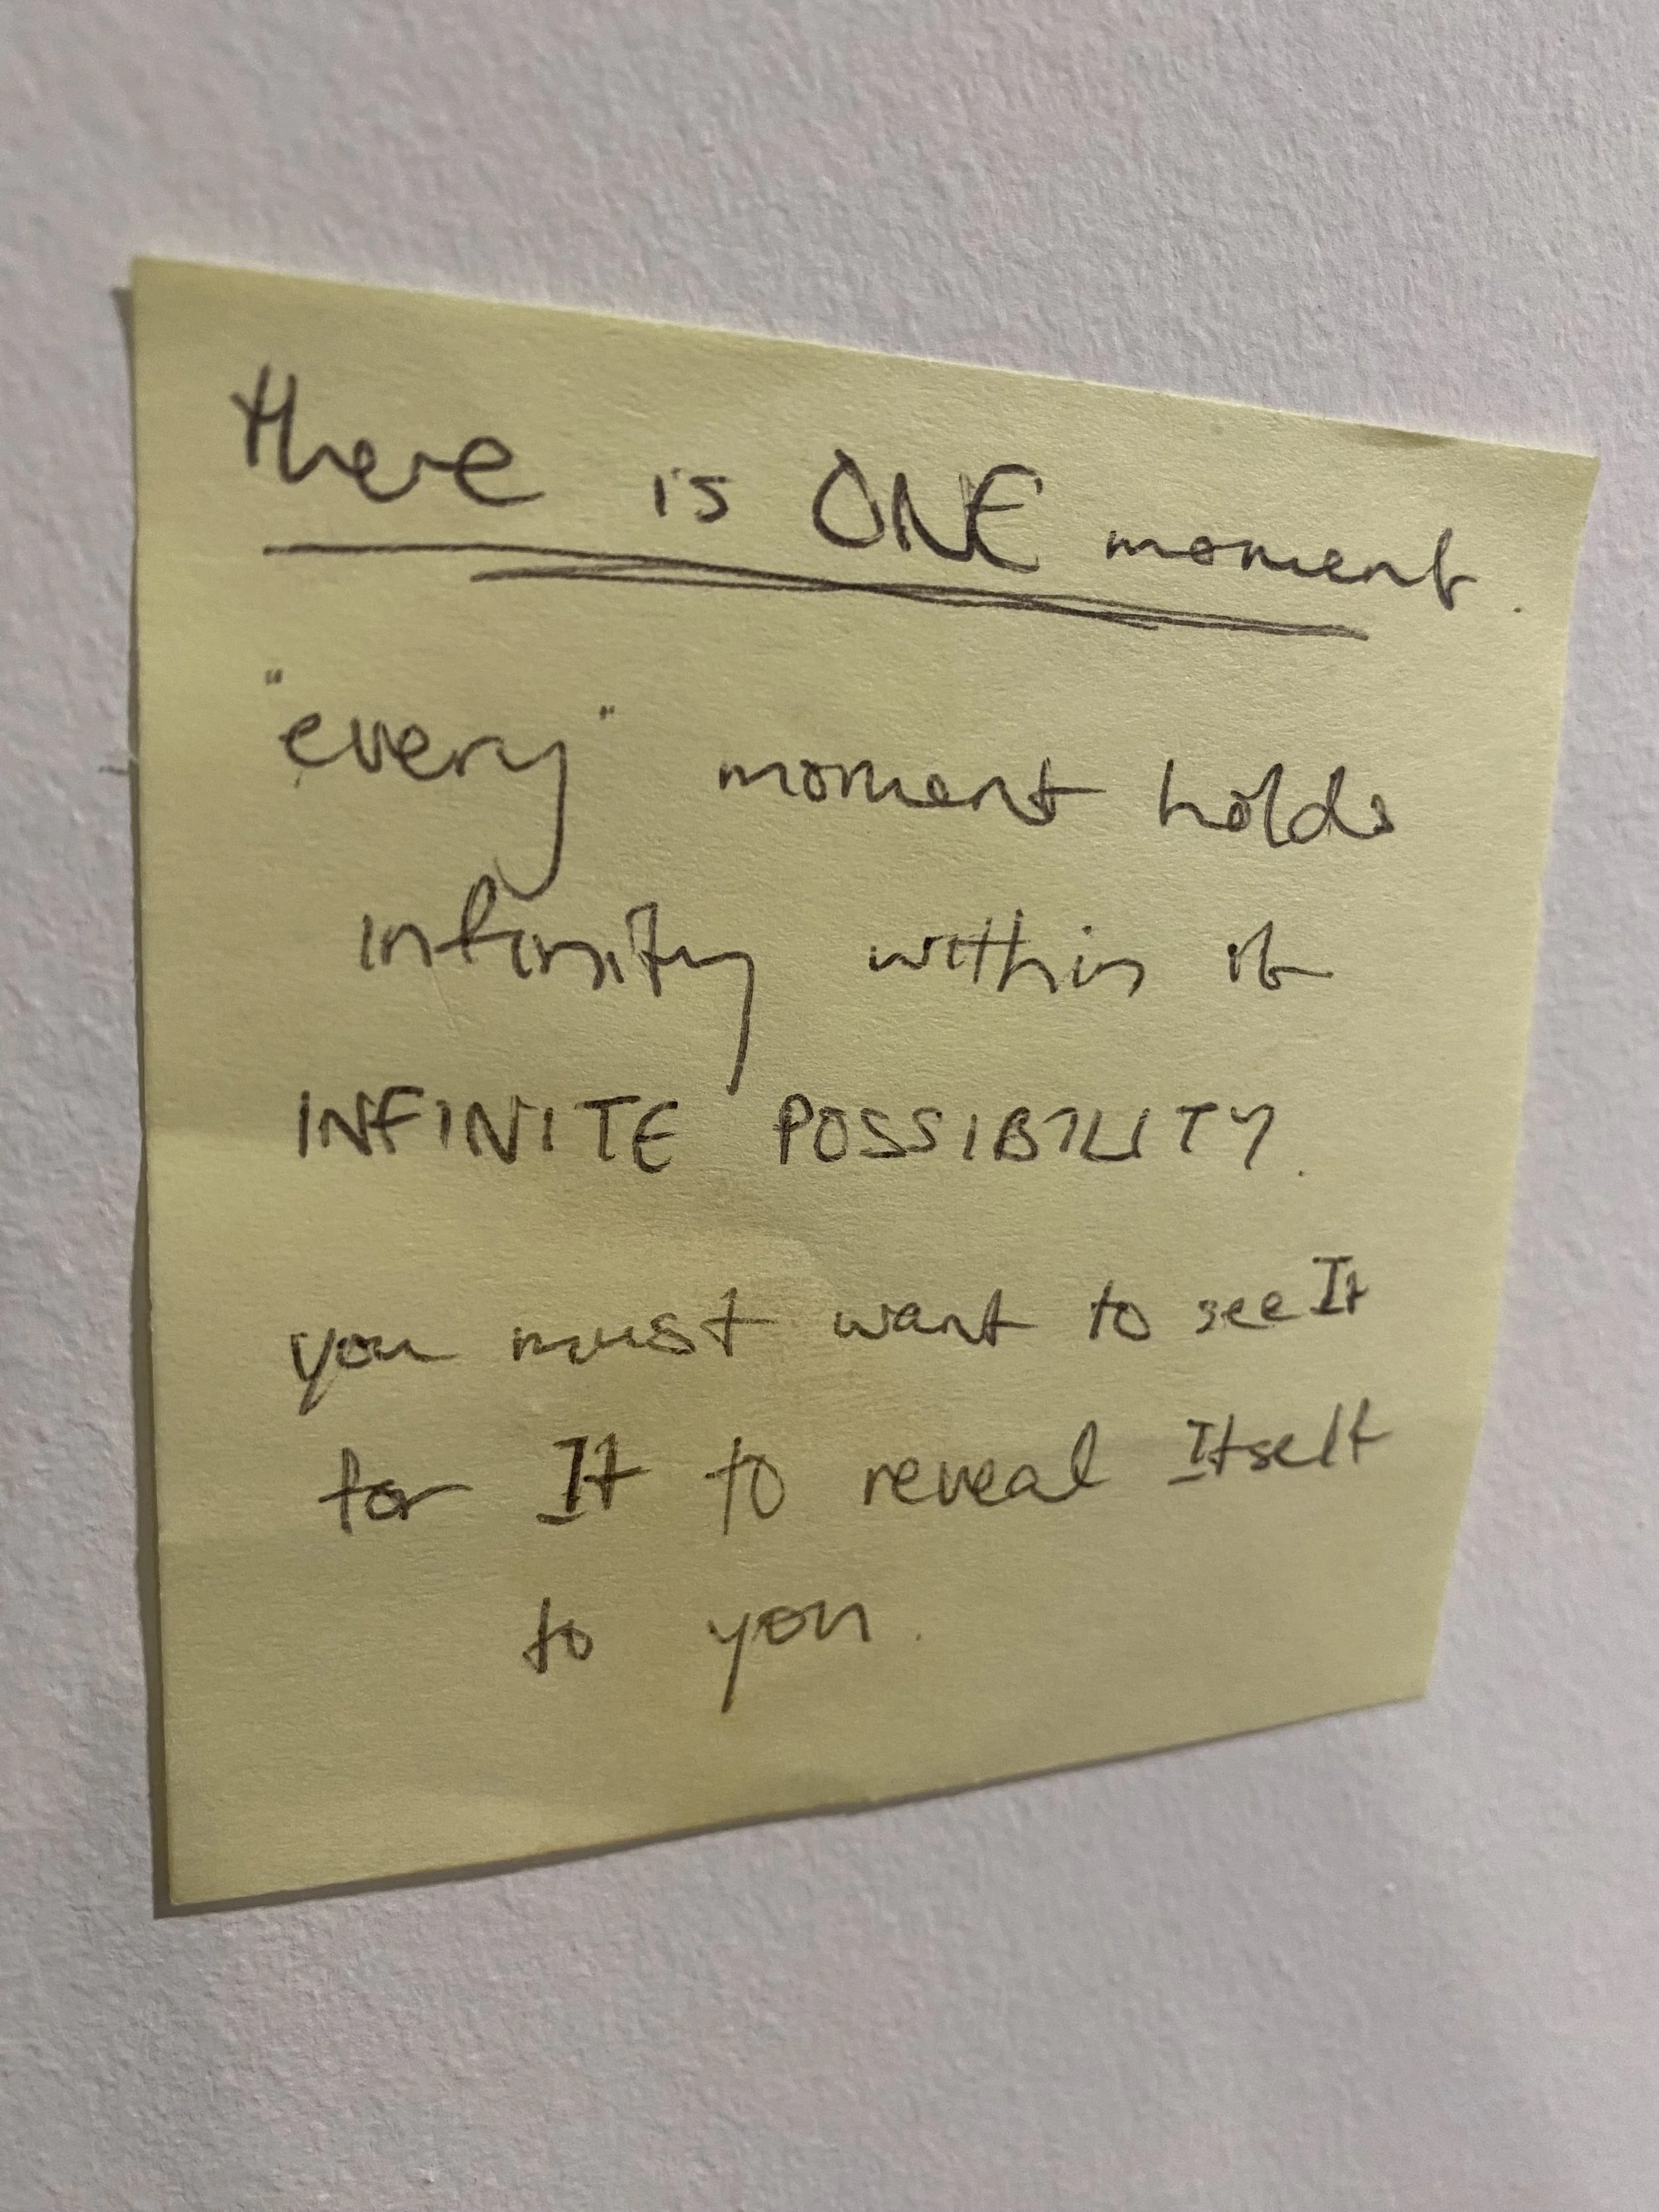 there is ONE moment.
"every" moment holds
infinity within it
INFINITE POSSIBILITY.
you must want to see It
for It to reveal Itself
to you.